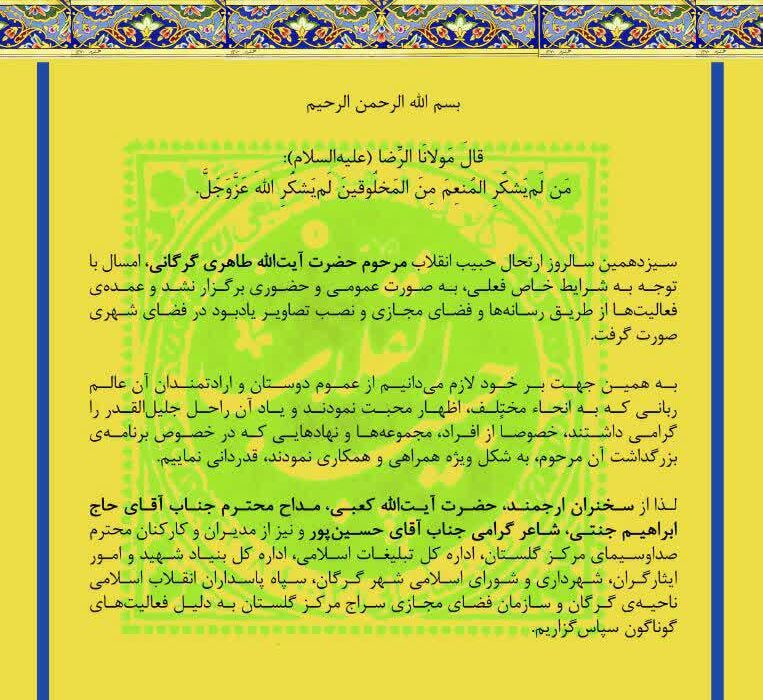 بسم الله الرحمن الرحیم
قالَ مَولانَا الرِّضا (علیه‌السلام):
مَن لَم‌یَشکُرِ المُنعِمَ مِنَ المَخلُوقینَ لَم‌یَشکُرِ اللهَ عَزَّوَجَلَّ.
سیزدهمین سالروز ارتحال حبیب انقلاب مرحوم حضرت آیت‌الله طاهری گرگانی، امسال با
توجه به شرایط خاص فعلی، به صورت عمومی و حضوری برگزار نشد و عمده‌ی
فعالیت‌ها از طریق رسانه‌ها و فضای مجازی و نصب تصاویر یادبود در فضای شهری
صورت گرفت.
به همین جهت بر خود لازم می‌دانیم از عموم دوستان و ارادتمندان آن عالم
ربانی که به انحاء مختلف، اظهار محبت نمودند و یاد آن راحل جلیل‌القدر را
گرامی داشتند، خصوصاً از افراد، مجموعه‌ها و نهادهایی که در خصوص برنامه‌ی
بزرگداشت آن مرحوم، به شکل ویژه همراهی و همکاری نمودند، قدردانی نماییم.
لذا از سخنران ارجمند، حضرت آیت‌الله کعبی، مداح محترم جناب آقای حاج
ابراهیم جنتی، شاعر گرامی جناب آقای حسین‌پور و نیز از مدیران و کارکنان محترم
صداوسیمای مرکز گلستان، اداره کل تبلیغات اسلامی، اداره کل بنیاد شهید و امور
ایثارگران، شهرداری و شورای اسلامی شهر گرگان، سپاه پاسداران انقلاب اسلامی
ناحیه‌ی گرگان و سازمان فضای مجازی سراج مرکز گلستان به دلیل فعالیت‌های
گوناگون سپاس‌گزاریم.
حبیب انقلاب